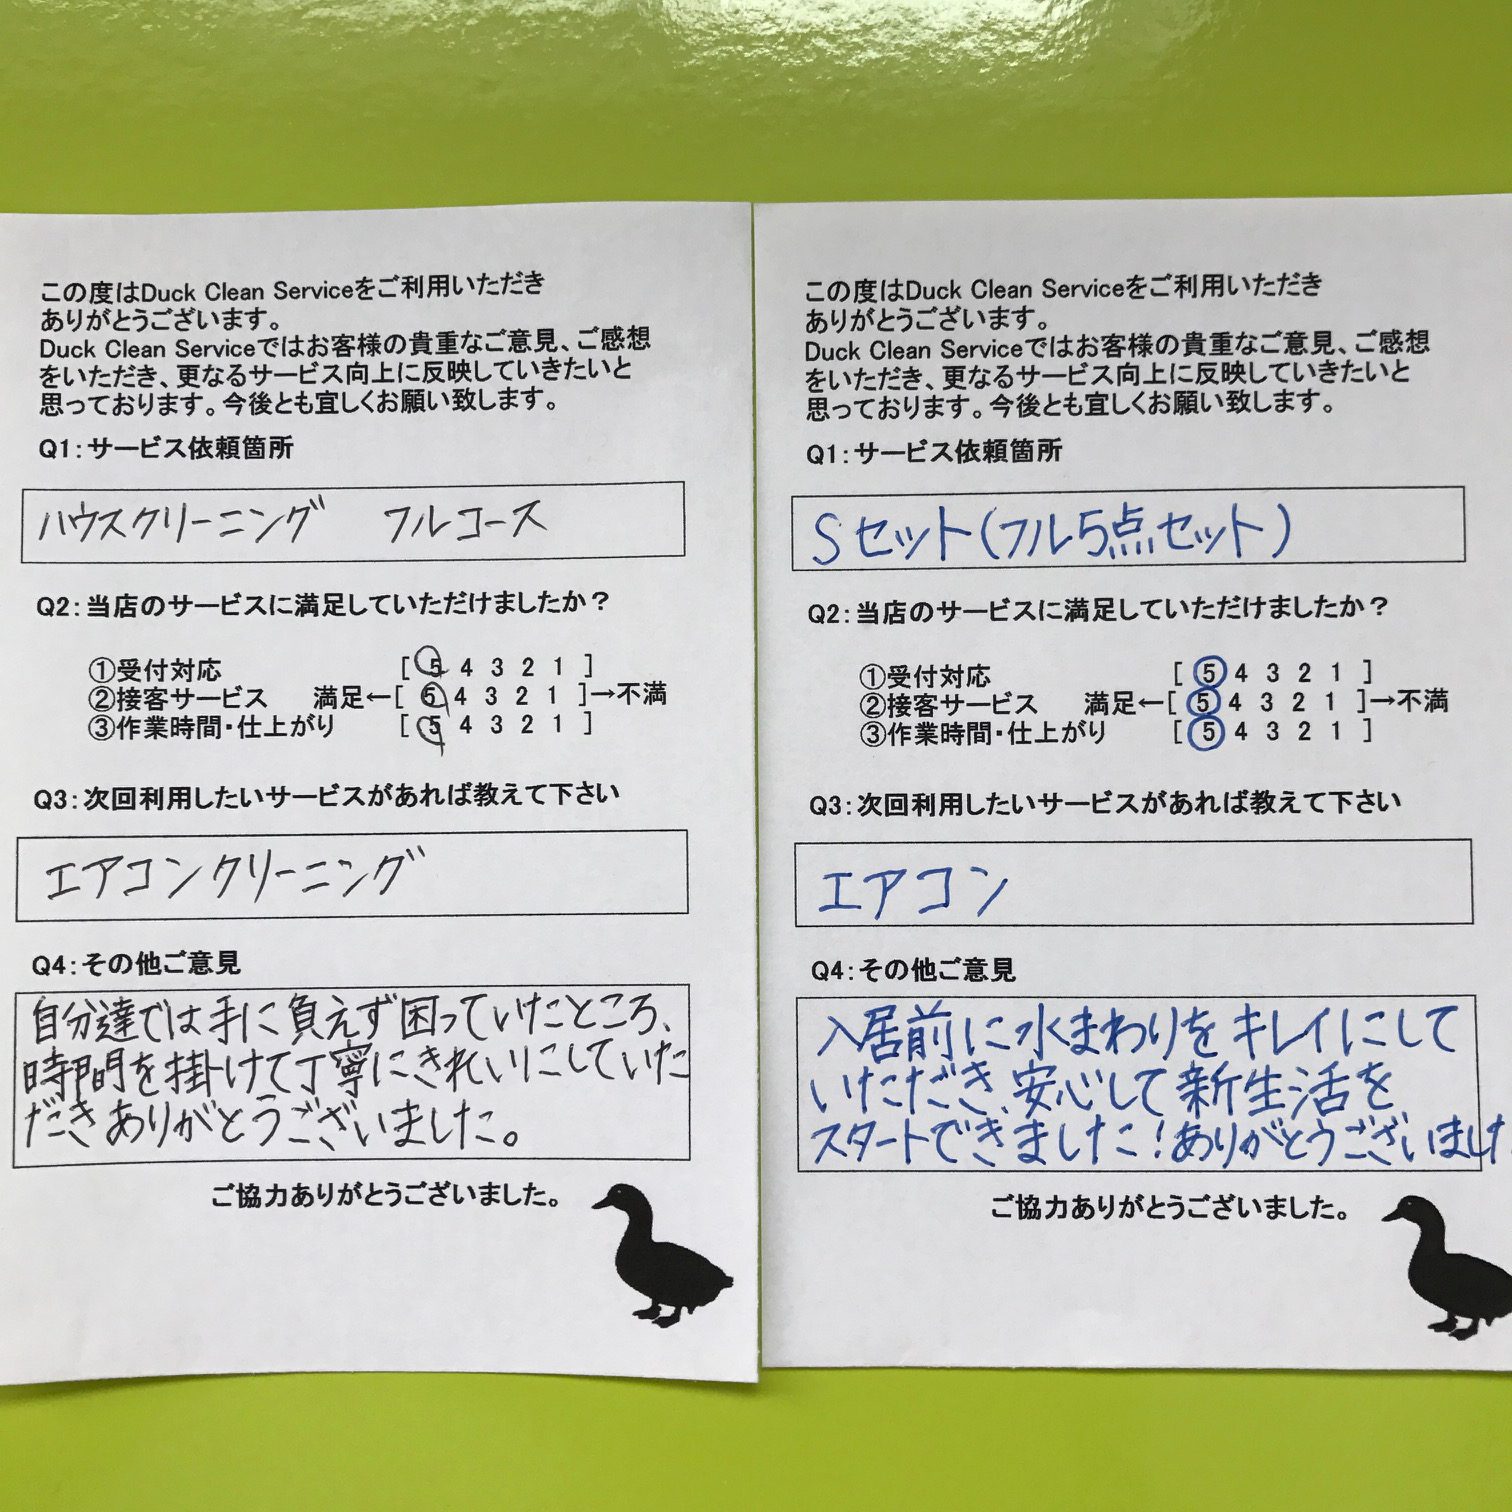 この度はDuck Clean Serviceをご利用いただき
ありがとうございます。
Duck Clean Serviceではお客様の貴重なご意見、ご感想
をいただき、更なるサービス向上に反映していきたいと
思っております。今後とも宜しくお願い致します。
Q1:サービス依頼箇所
ハウスクリーニング フルコース
Q2:当店のサービスに満足していただけましたか？
①受付対応 [ 5 4 3 2 1 ]
②接客サービス 満足←[ 5 4 3 2 1 ]→不満
③作業時間・仕上がり [ 5 4 3 2 1 ]
Q3:次回利用したいサービスがあれば教えて下さい
エアコンクリーニング
Q4:その他ご意見
自分達では手に負えず困っていたところ、
時間を掛けて丁寧にきれいにしていた
だきありがとうございました。
ご協力ありがとうございました。
この度はDuck Clean Serviceをご利用いただき
ありがとうございます。
Duck Clean Serviceではお客様の貴重なご意見、ご感想
をいただき、更なるサービス向上に反映していきたいと
思っております。今後とも宜しくお願い致します。
Q1:サービス依頼箇所
Sセット(フル5点セット)
Q2:当店のサービスに満足していただけましたか？
①受付対応 [ 5 4 3 2 1 ]
②接客サービス 満足←[ 5 4 3 2 1 ]→不満
③作業時間・仕上がり [ 5 4 3 2 1 ]
Q3:次回利用したいサービスがあれば教えて下さい
エアコン
Q4:その他ご意見
入居前に水まわりをキレイにして
いただき、安心して新生活を
スタートできました！ありがとうございました
ご協力ありがとうございました。